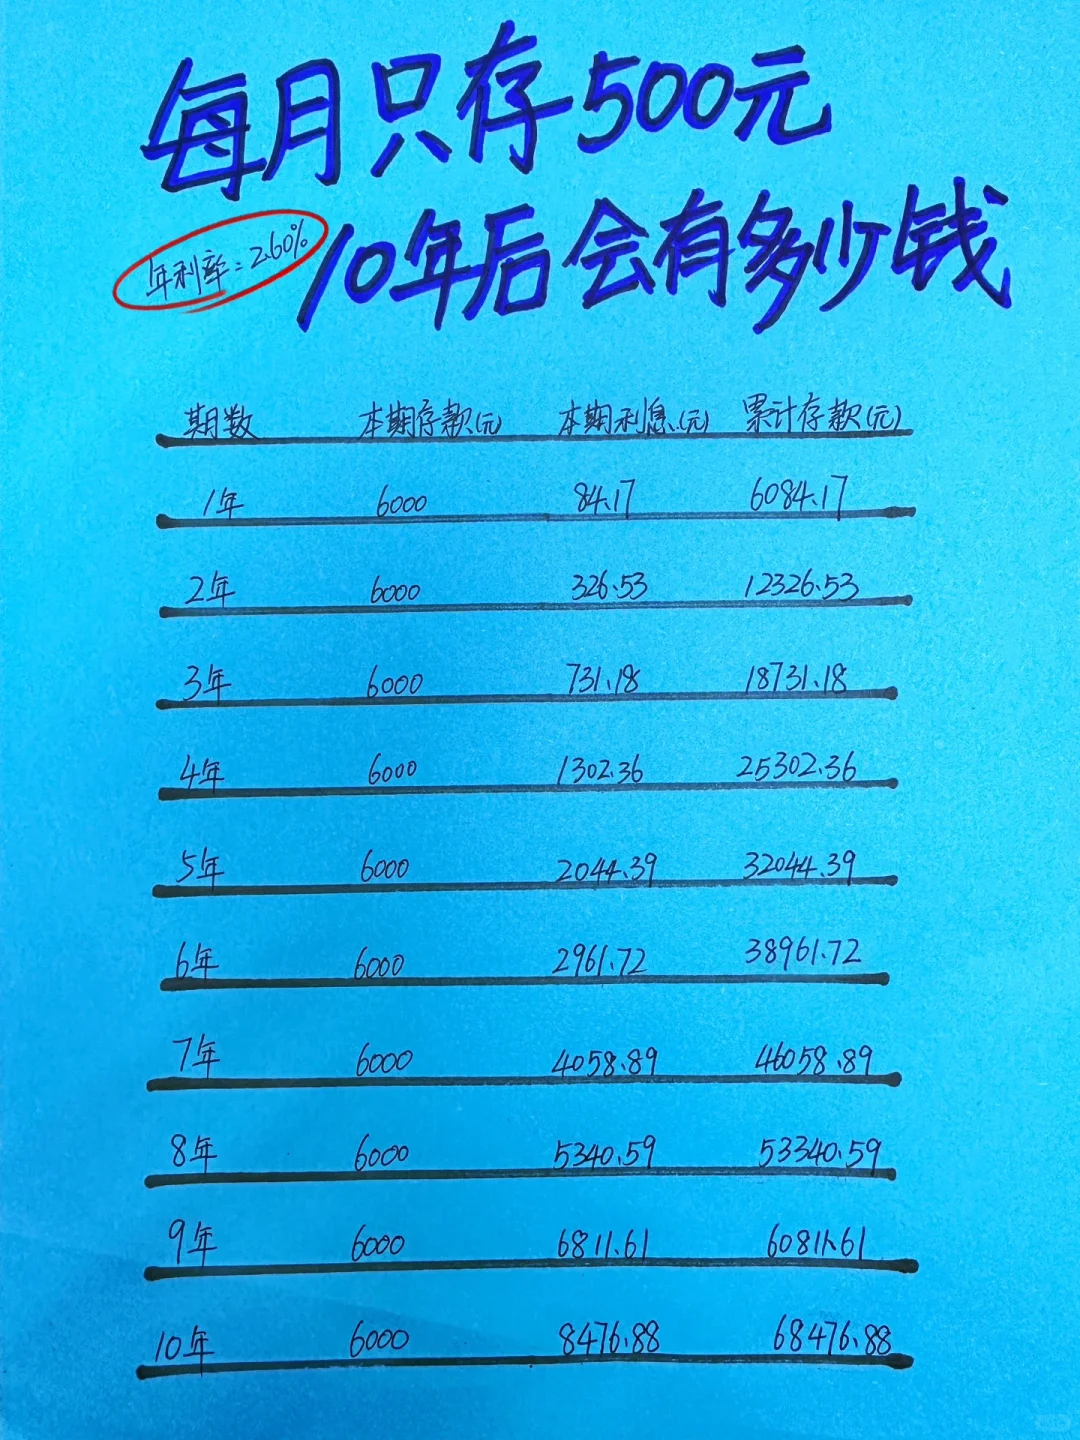 每月只存500元
年利率:2.60%
10年后会有多少钱
期数 本期存款(元) 本期利息(元) 累计存款(元)
1年 6000 84.17 6084.17
2年 6000 326.53 12326.53
3年 6000 731.18 18731.18
4年 6000 1302.36 25302.36
5年 6000 2044.39 32044.39
6年 6000 2961.72 38961.72
7年 6000 4058.89 46058.89
8年 6000 5340.59 53340.59
9年 6000 6811.61 60811.61
10年 6000 8476.88 68476.88